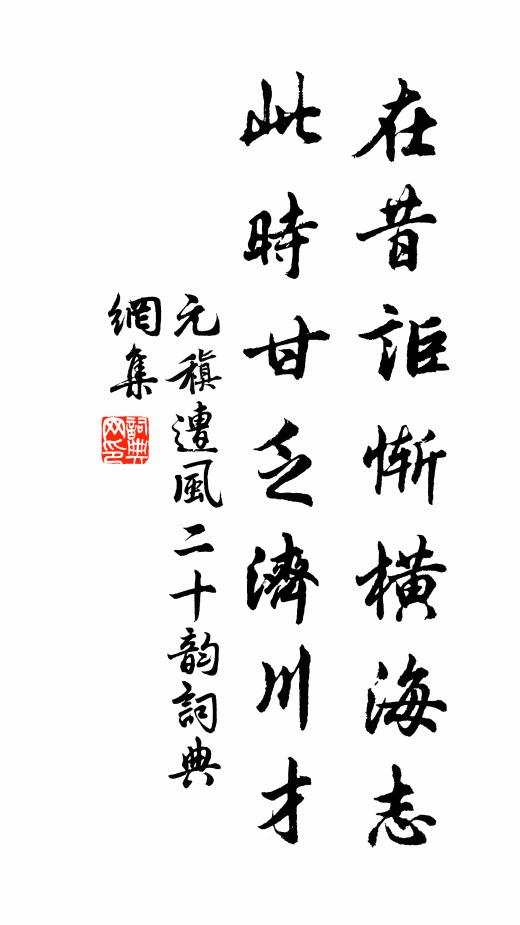 在昔詎慚橫海志
此時甘乏濟川才
元稹遭風二十韵詞典
網集
詞典
网印